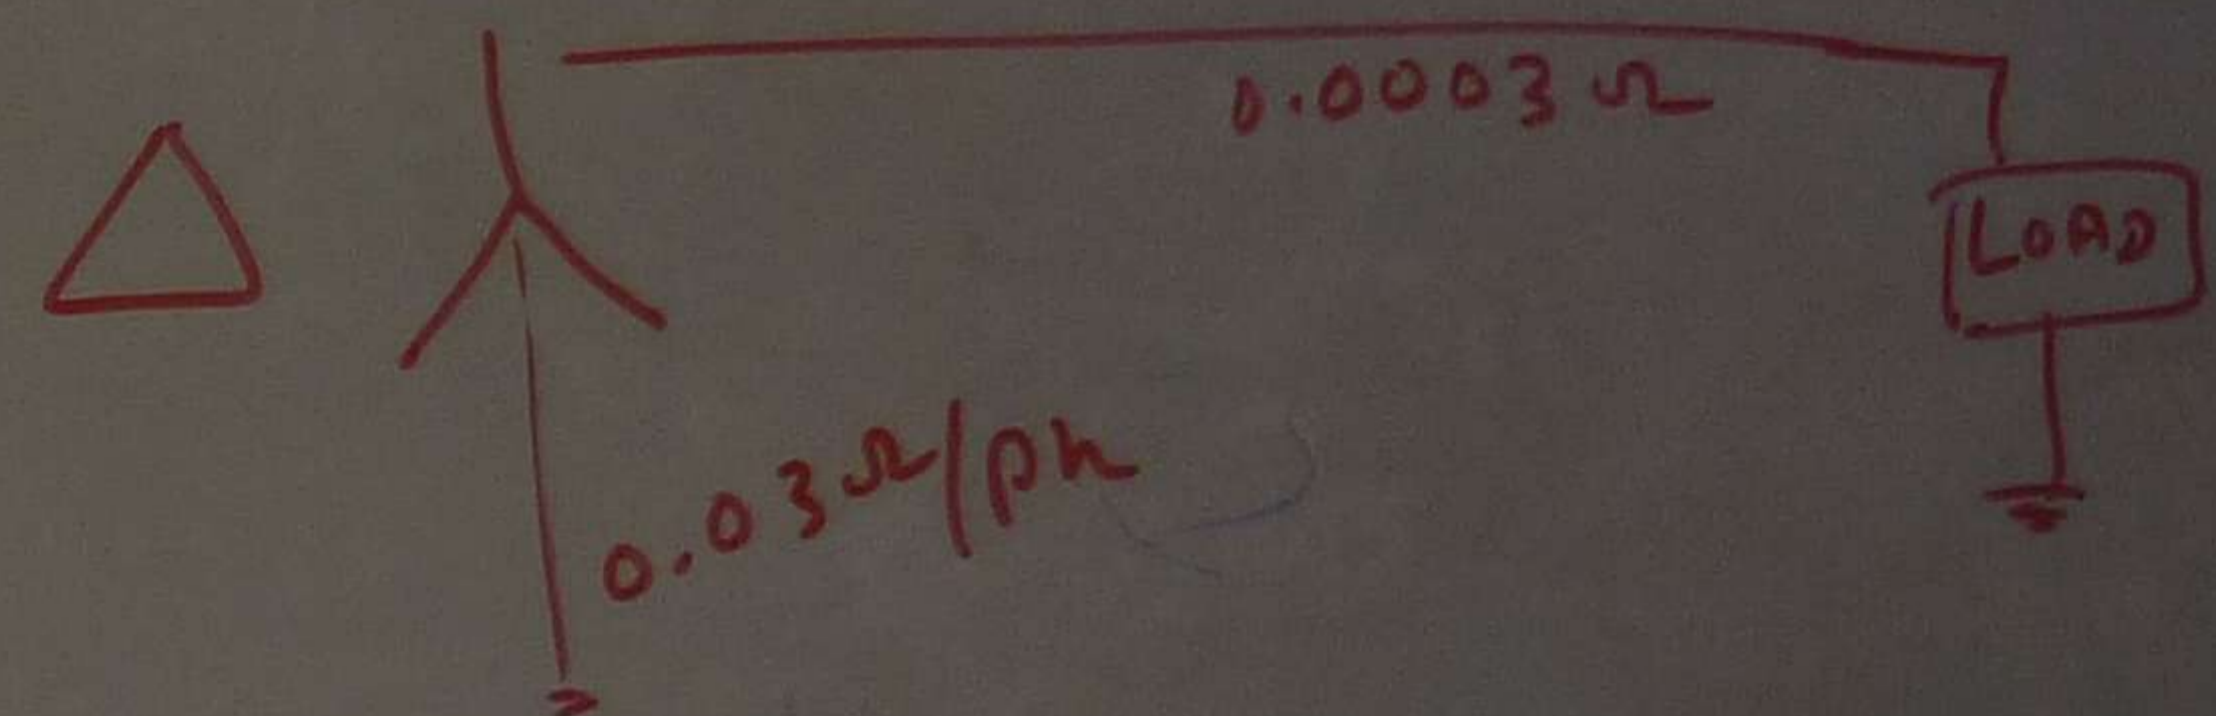 0.0003 Ω
LOAD
0.03 Ω/ph